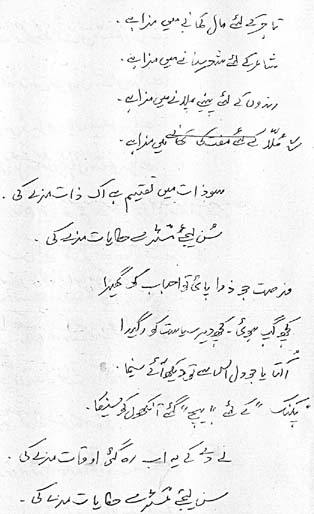 تاجر کے لئے مال کمانے میں مزا ہے ۔
شاعر کے لئے شعر سنانے میں مزا ہے ۔
رندوں کے لئے پینے پلانے میں مزا ہے ۔
مُلّا کے لئے مفت کا کھانے میں مزا ہے ۔
سو ذات میں تقسیم ہے اک ذات مزے کی ۔
سُن لیجئے حکایات مزے کی ۔
فرصت جو ذرا پائی تو احباب کو گھیرا
کچھ گپ ہوئی ۔ کچھ دیر سیاست کو رگیدا
اُکتا یا جو دل اس سے تو دیکھ آئے سنیما ۔
"پکنک" کے لئے گئے آنکھوں کو سینکا ۔
لے دے کے یہ اب رہ گئی اوقات مزے کی ۔
سن لیجئے حکایات مزے کی ۔